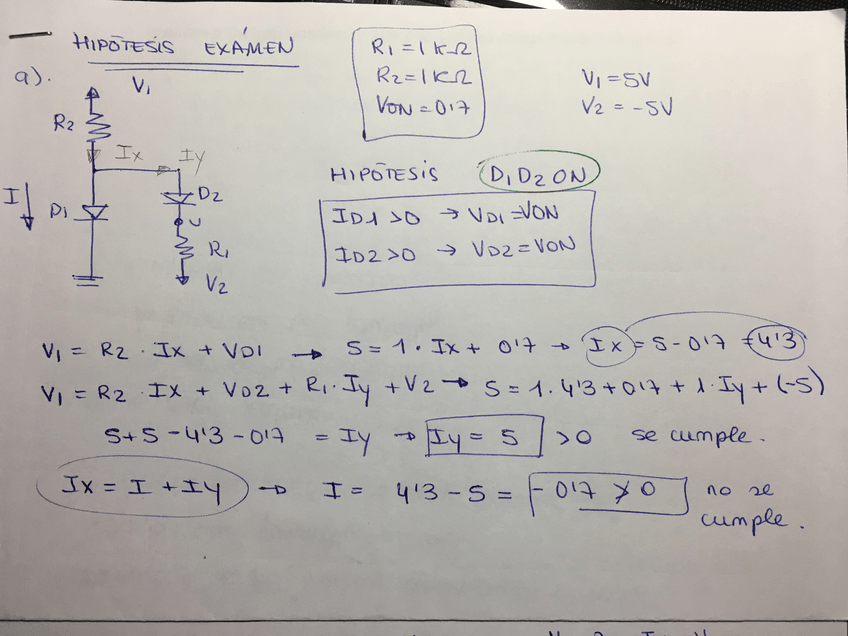 HIPÓTESIS EXÁMEN
a).
V1
R2
Ix
Iy
I
D1
D2
U
R1
V2
R1 = 1 KΩ
R2 = 1 KΩ
VON = 0'7
V1 = 5V
V2 = -5V
HIPÓTESIS D1 D2 ON
ID1 >0 → VD1 = VON
ID2 >0 → VD2 = VON
V1 = R2 · Ix + VD1 → 5 = 1 · Ix + 0'7 → Ix = 5 - 0'7 = 4'3
V1 = R2 · Ix + VD2 + R1 · Iy + V2 → 5 = 1 · 4'3 + 0'7 + 1 · Iy + (-5)
5+5 -4'3 -0'7 = Iy → Iy = 5 >0 se cumple.
Ix = I + Iy → I = 4'3 - 5 = -0'7 ≯ 0 no se
cumple.